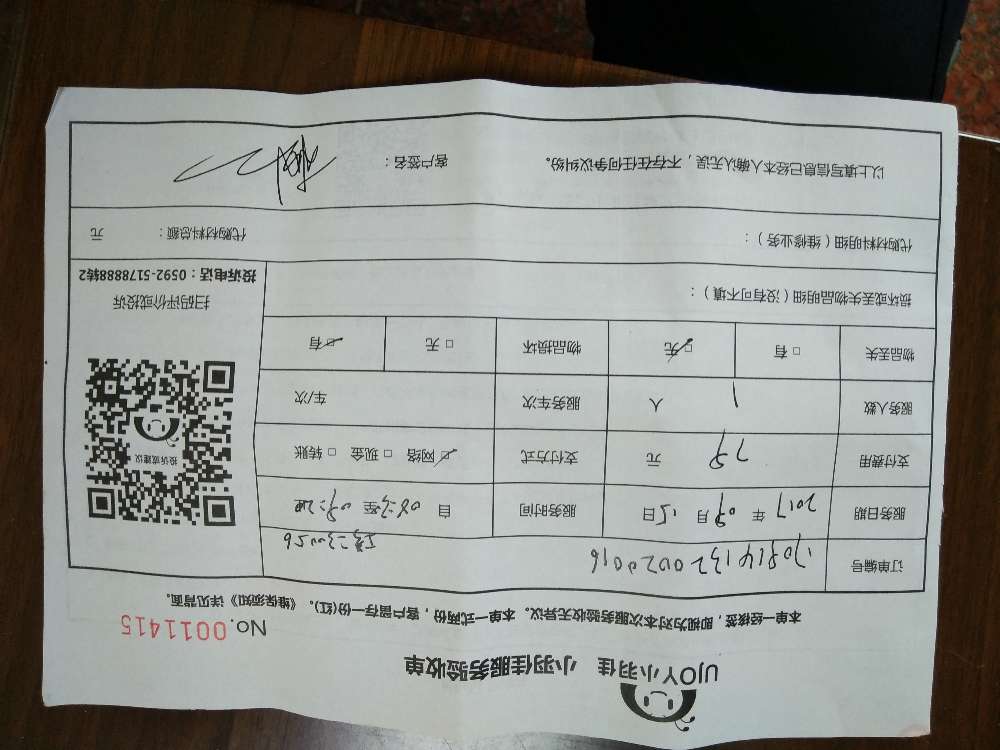 UJOY小羽佳 小羽佳服务验收单
No. 0011415
本单一经核签，即视为对本次服务验收无异议。本单一式两份，客户留存一份(红)。《维保须知》详见背面。
订单编号
服务日期 2017 年 08 月 15 日 服务时间 自 至
支付费用 78 元 支付方式 网络 □ 现金 □ 转账
服务人数 1 人 服务车次 车/次
物品丢失 □ 有 □ 无 物品损坏 □ 无 □ 有
损坏或丢失物品明细（没有可不填）：
投诉或建议
扫码评价或投诉
投诉电话：0592-5178888转2
代购材料明细（维修业务）： 代购材料总额： 元
以上填写信息已经本人确认无误，不存在任何争议纠纷。 客户签名：